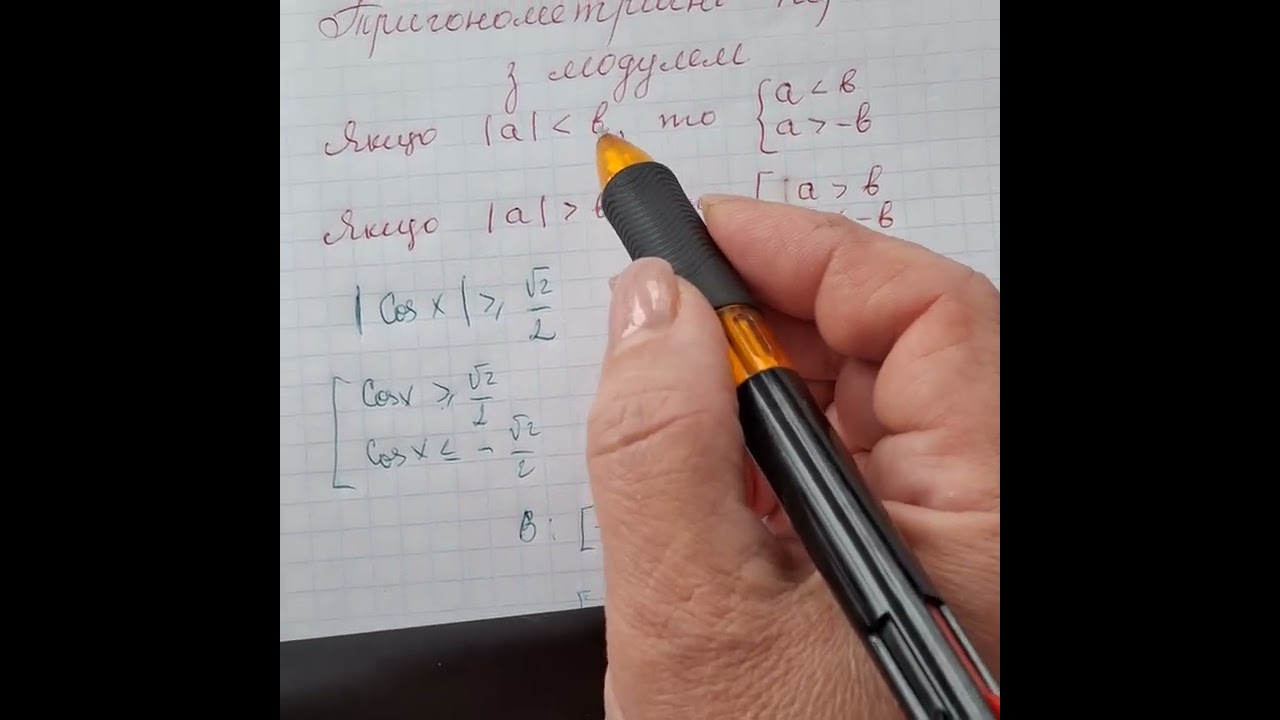 Тригонометричні
з модулем
Якщо |a| < в, то { a < в
a > -в
Якщо |a| > в [ a > в
< -в
| Cos x | ⩾ √2/2
[ Cos x ⩾ √2/2
Cos x ≤ - √2/2
В: [-